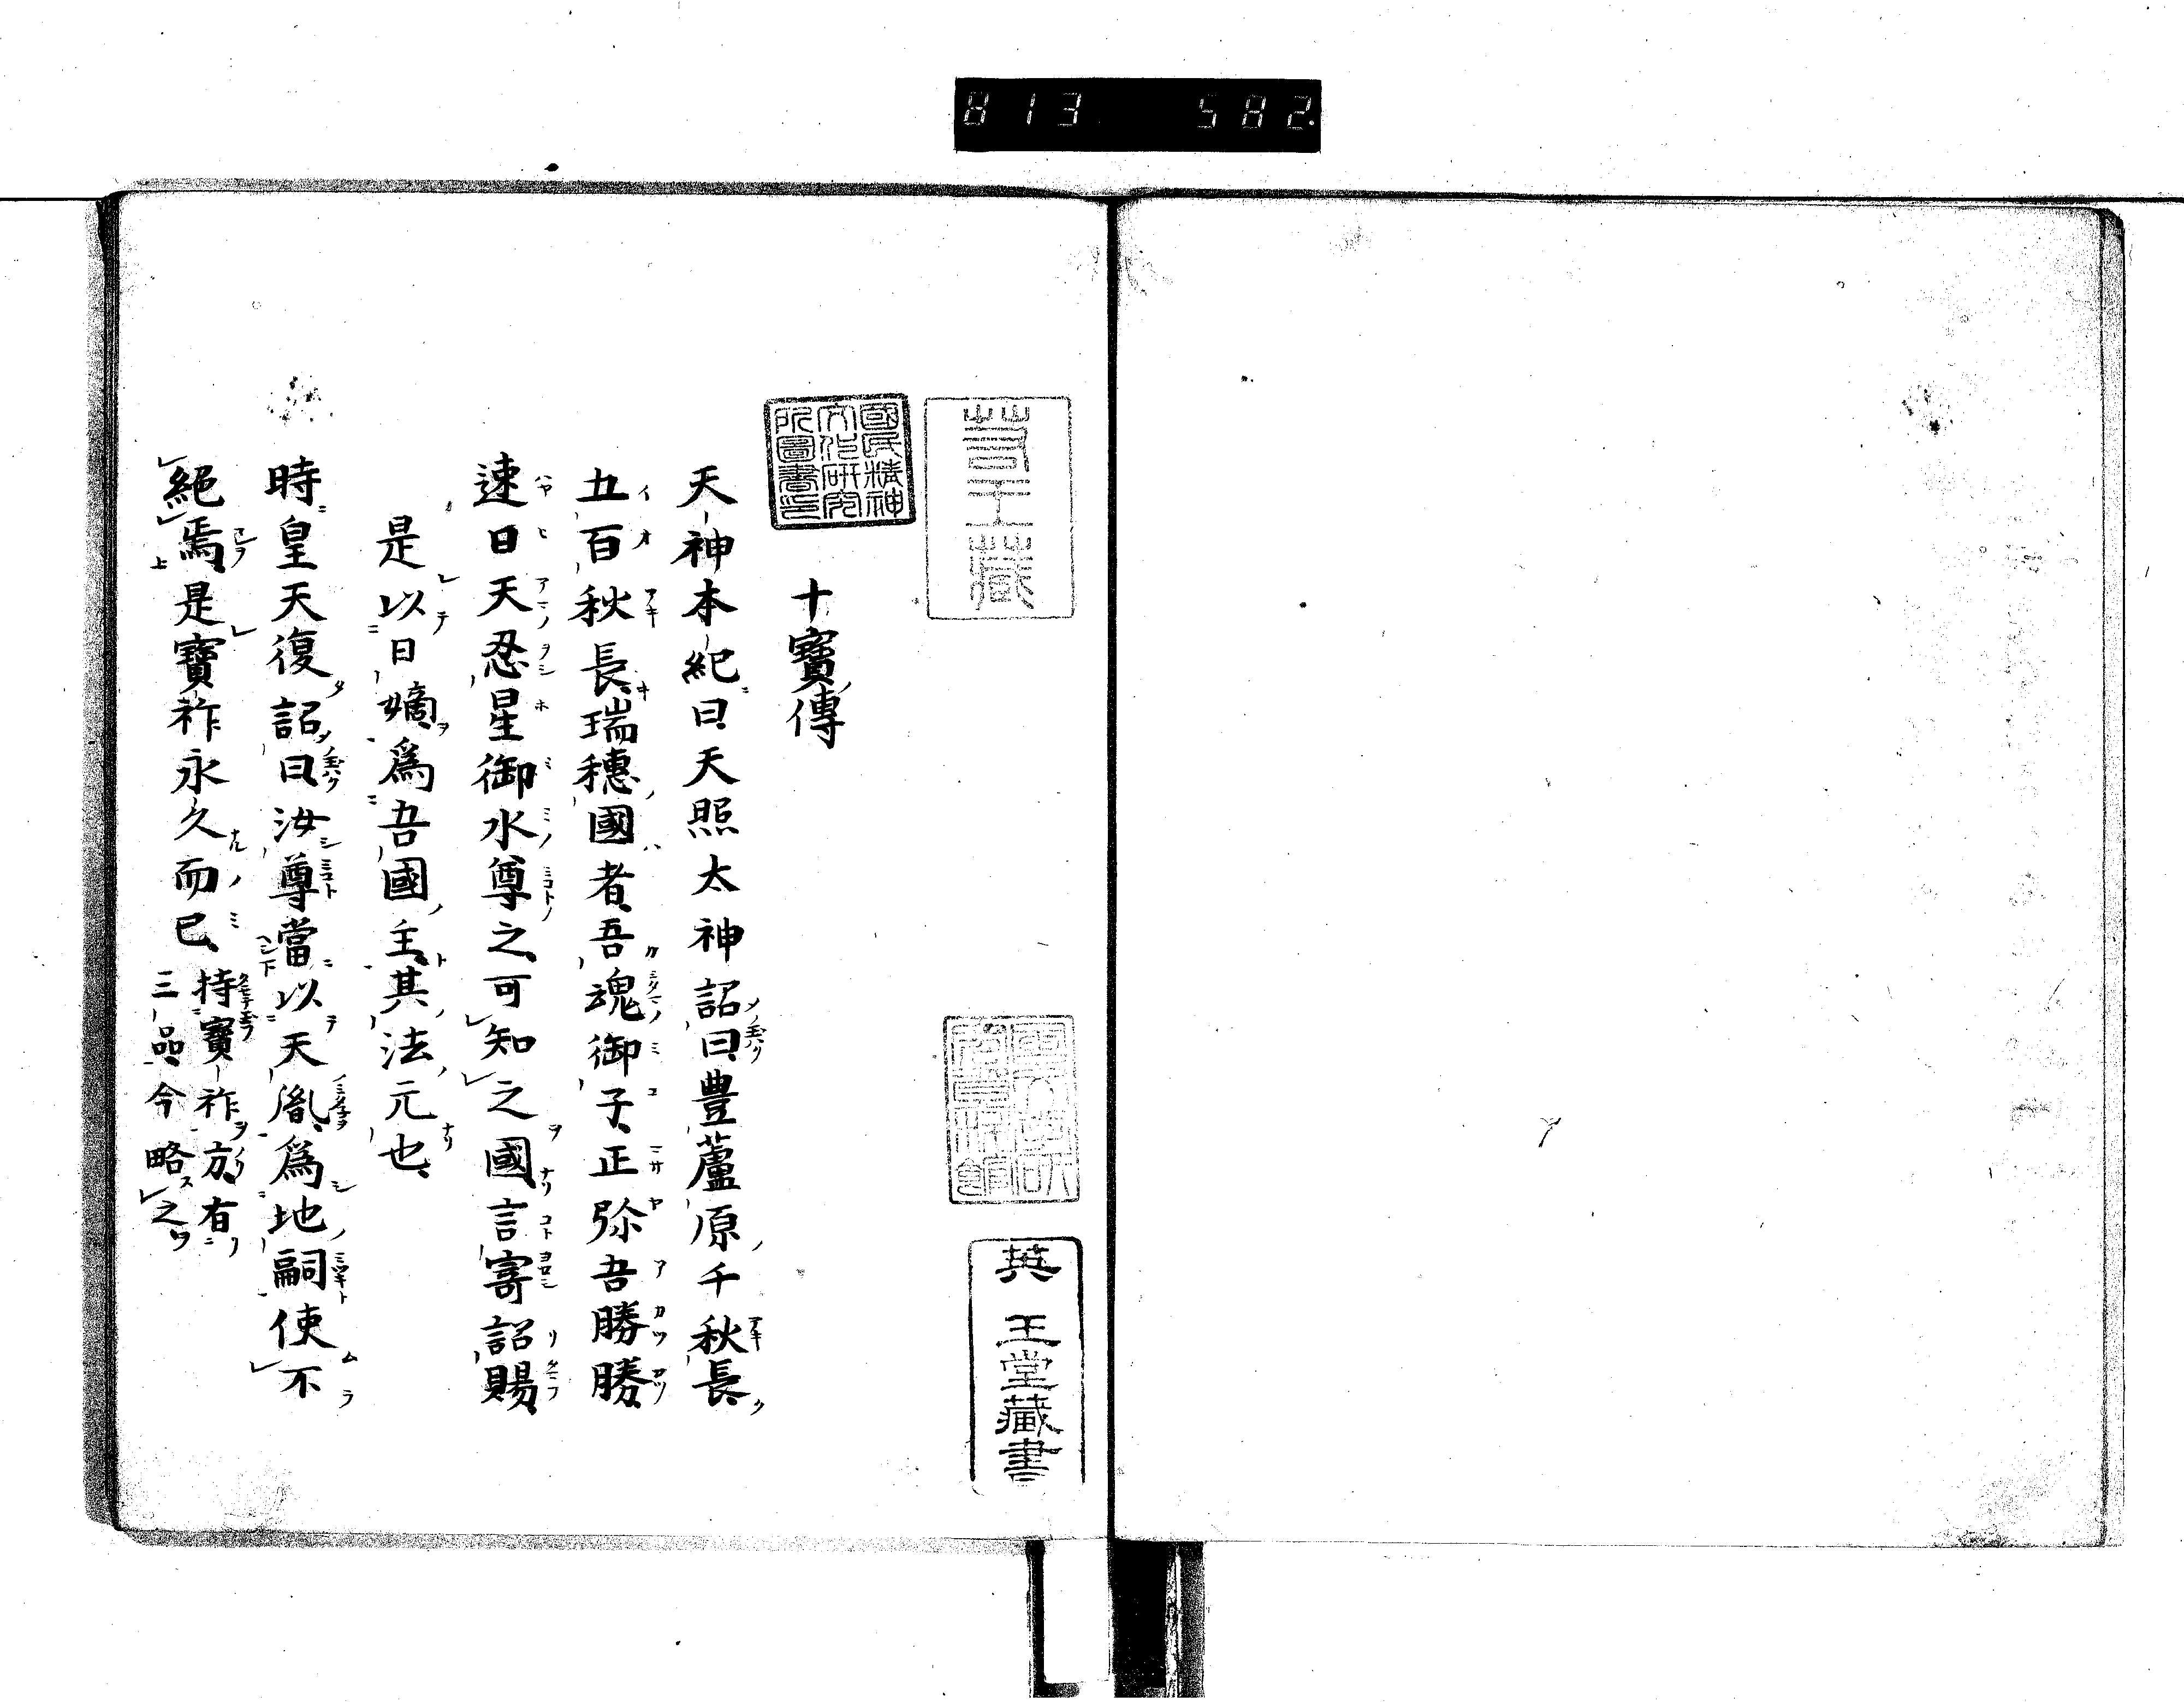 813 582
英 王堂藏書
國民精神
文化研究
所圖書印
十寶傳
天神本紀曰天照太神詔曰豊蘆原千秋長
五百秋長瑞穗國者吾魂御子正弥吾勝勝
速日天忍星御水尊之可知之國言寄詔賜
是以日嫡為吾國主其法元也
時皇天復詔曰汝尊當以天胤為地嗣使不
絕焉是寶祚永久而已
持寶祚方有
三品今略之